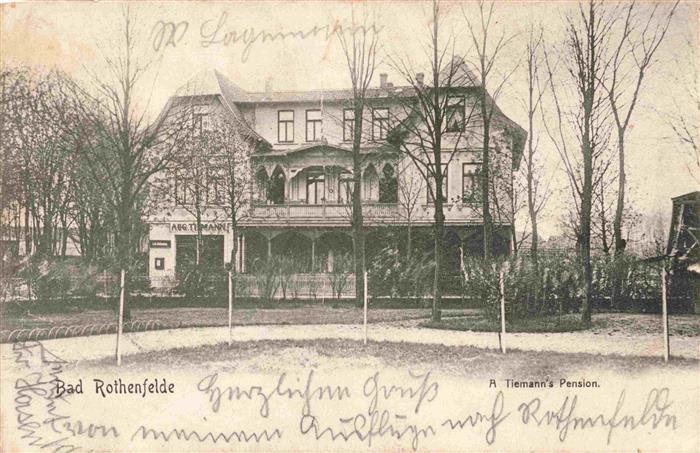 W. Lagemann
AUG. TIEMANN
Bad Rothenfelde
A Tiemann's Pension.
Herzlichen Gruß
von meinem Ausfluge nach Rothenfelde